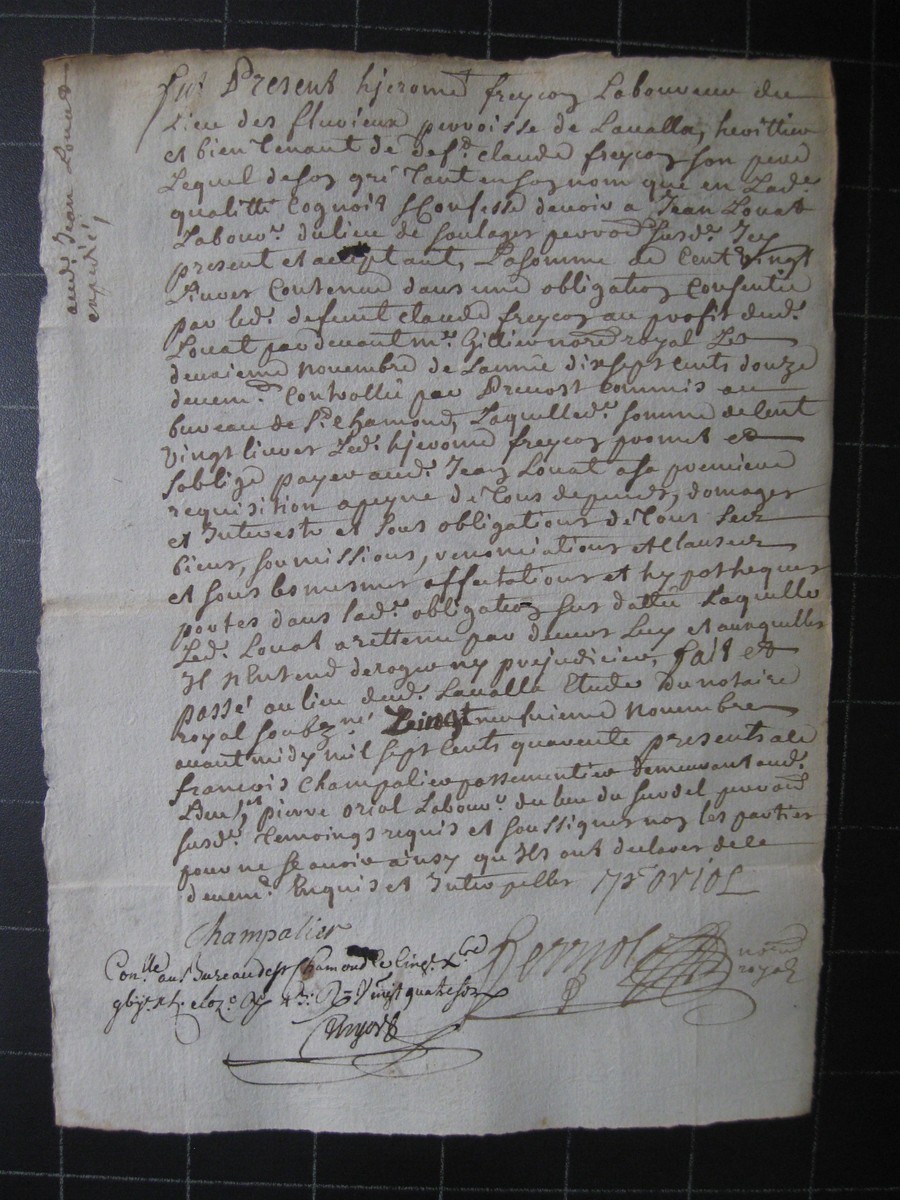 audt Jean Louat
expedié
fut Present hjeromé freycon Laboureur du
Lieu des fluvieux perroisse de Lavalla, herittier
et bien tenant de deft. claude freycon son pere
Lequel de son gré tant en son nom que en Lade.
qualitté Cognoit & Confesse devoir a Jean Louat
Labour. du lieu de soulager perroe. susde. Icy
present et acceptant, La somme de Cent Vingt
Livres Contenue dans une obligation Consentie
par led. deffunt claude freycon au profit dud.
Louat par devant me. Gillier nore royal Le
deuxieme novembre de Lanneé dix sept cents douze
deuem. Controlleé par Prevost Commis au
bureau de st. Chamond, Laquelled. somme de Cent
Vingt livres Led. hjerome freycon promet et
soblige payer aud. Jean Louat a sa premiere
requisition a peyne de tous depends, domages
et Interests et sous obligations de tous ses
biens, soumissions, renonciations et Clauses
et sous les mesmes affectations et hypotheques
portes dans lade. obligation sus datteé Laquelle
Led. Louat a rettenu par devers Luy et auxquelles
Il n'Entend deroger ny prejudicier, fait et
passé au lieu dud. Lavalla Etude du notaire
royal soubzné. Le vingt neufvieme novembre
avant midy mil sept Cents quarente presents a ce
françois Champalier passementier demeurant aud.
Lieu, et pierre oriol Labour. du lieu du surdel perroe.
susde. temoings requis et soussignes non les parties
pour ne scavoir ainsy qu'Ils ont declarer de ce
deuem. Enquis et Interpelles P ORIOL
Champalier
nore
royal
Conlle au Bureau de St Chamond le cinq. Xbre
Vingt quatre sols